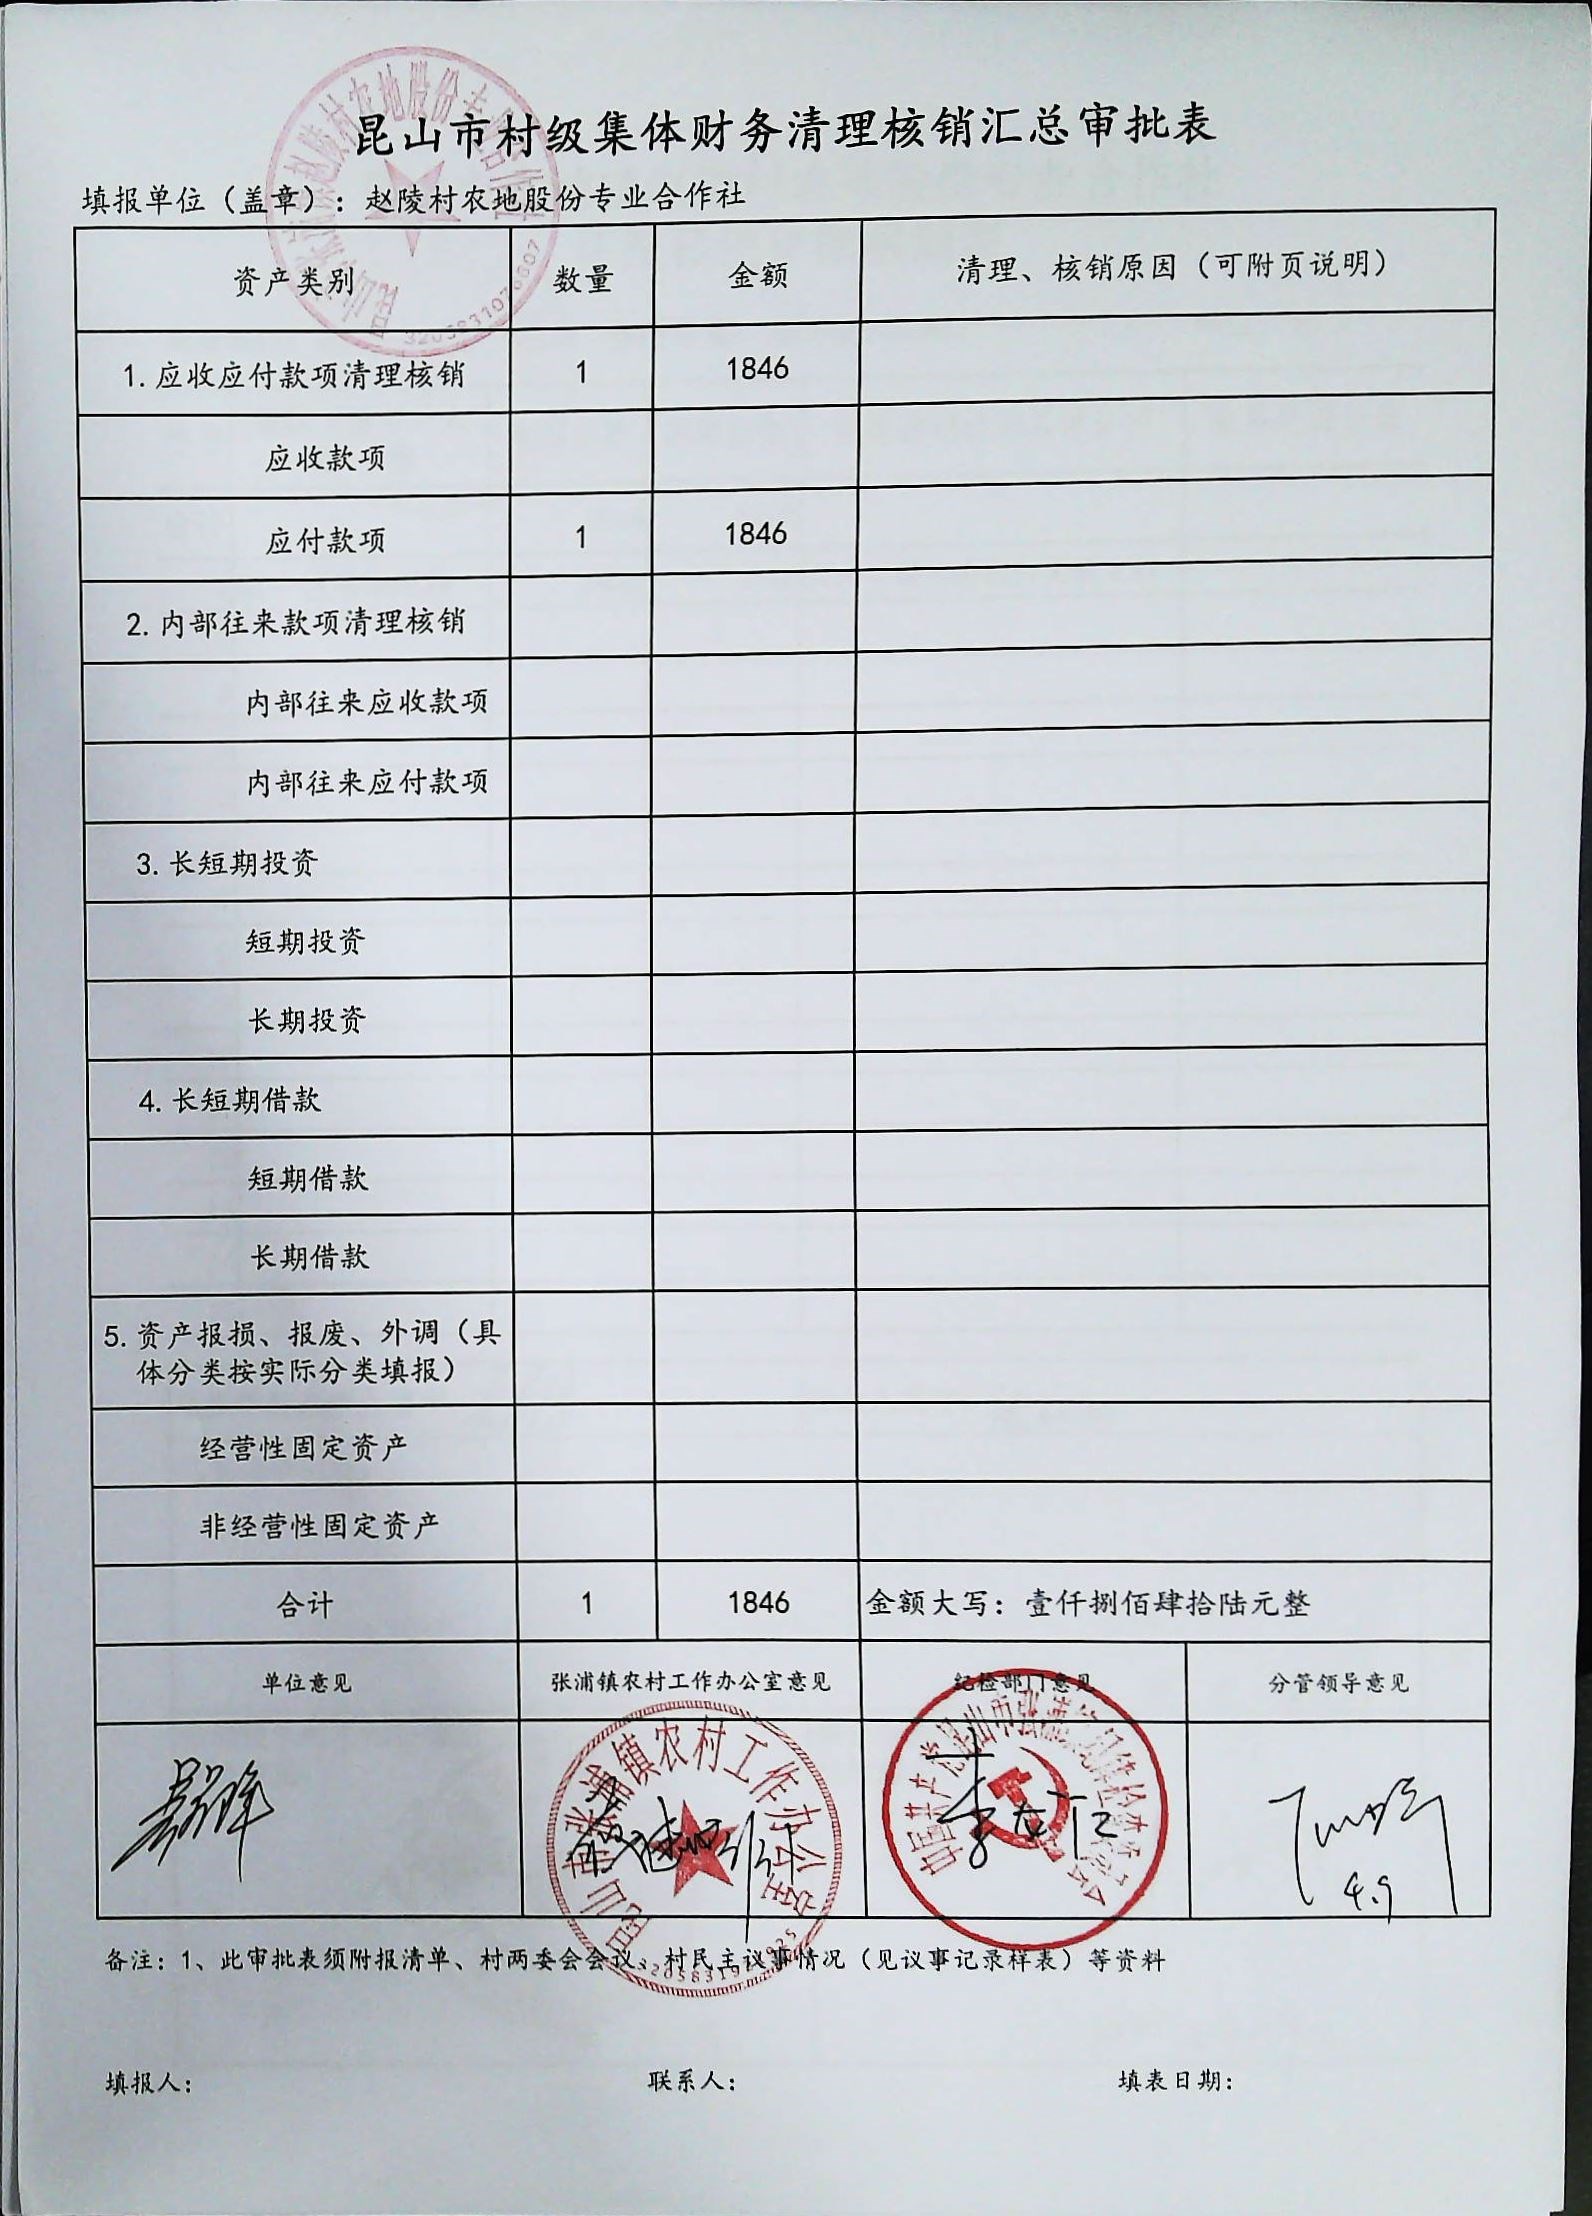 昆山市村级集体财务清理核销汇总审批表
填报单位（盖章）：赵陵村农地股份专业合作社
资产类别 数量 金额 清理、核销原因（可附页说明）
1.应收应付款项清理核销 1 1846
应收款项
应付款项 1 1846
2.内部往来款项清理核销
内部往来应收款项
内部往来应付款项
3.长短期投资
短期投资
长期投资
4.长短期借款
短期借款
长期借款
5.资产报损、报废、外调（具
体分类按实际分类填报）
经营性固定资产
非经营性固定资产
合计 1 1846 金额大写：壹仟捌佰肆拾陆元整
单位意见 张浦镇农村工作办公室意见 纪检部门意见 分管领导意见
张浦镇农村工作办公室
4.9
备注：1、此审批表须附报清单、村两委会会议、村民主议事情况（见议事记录样表）等资料
填报人： 联系人： 填表日期：